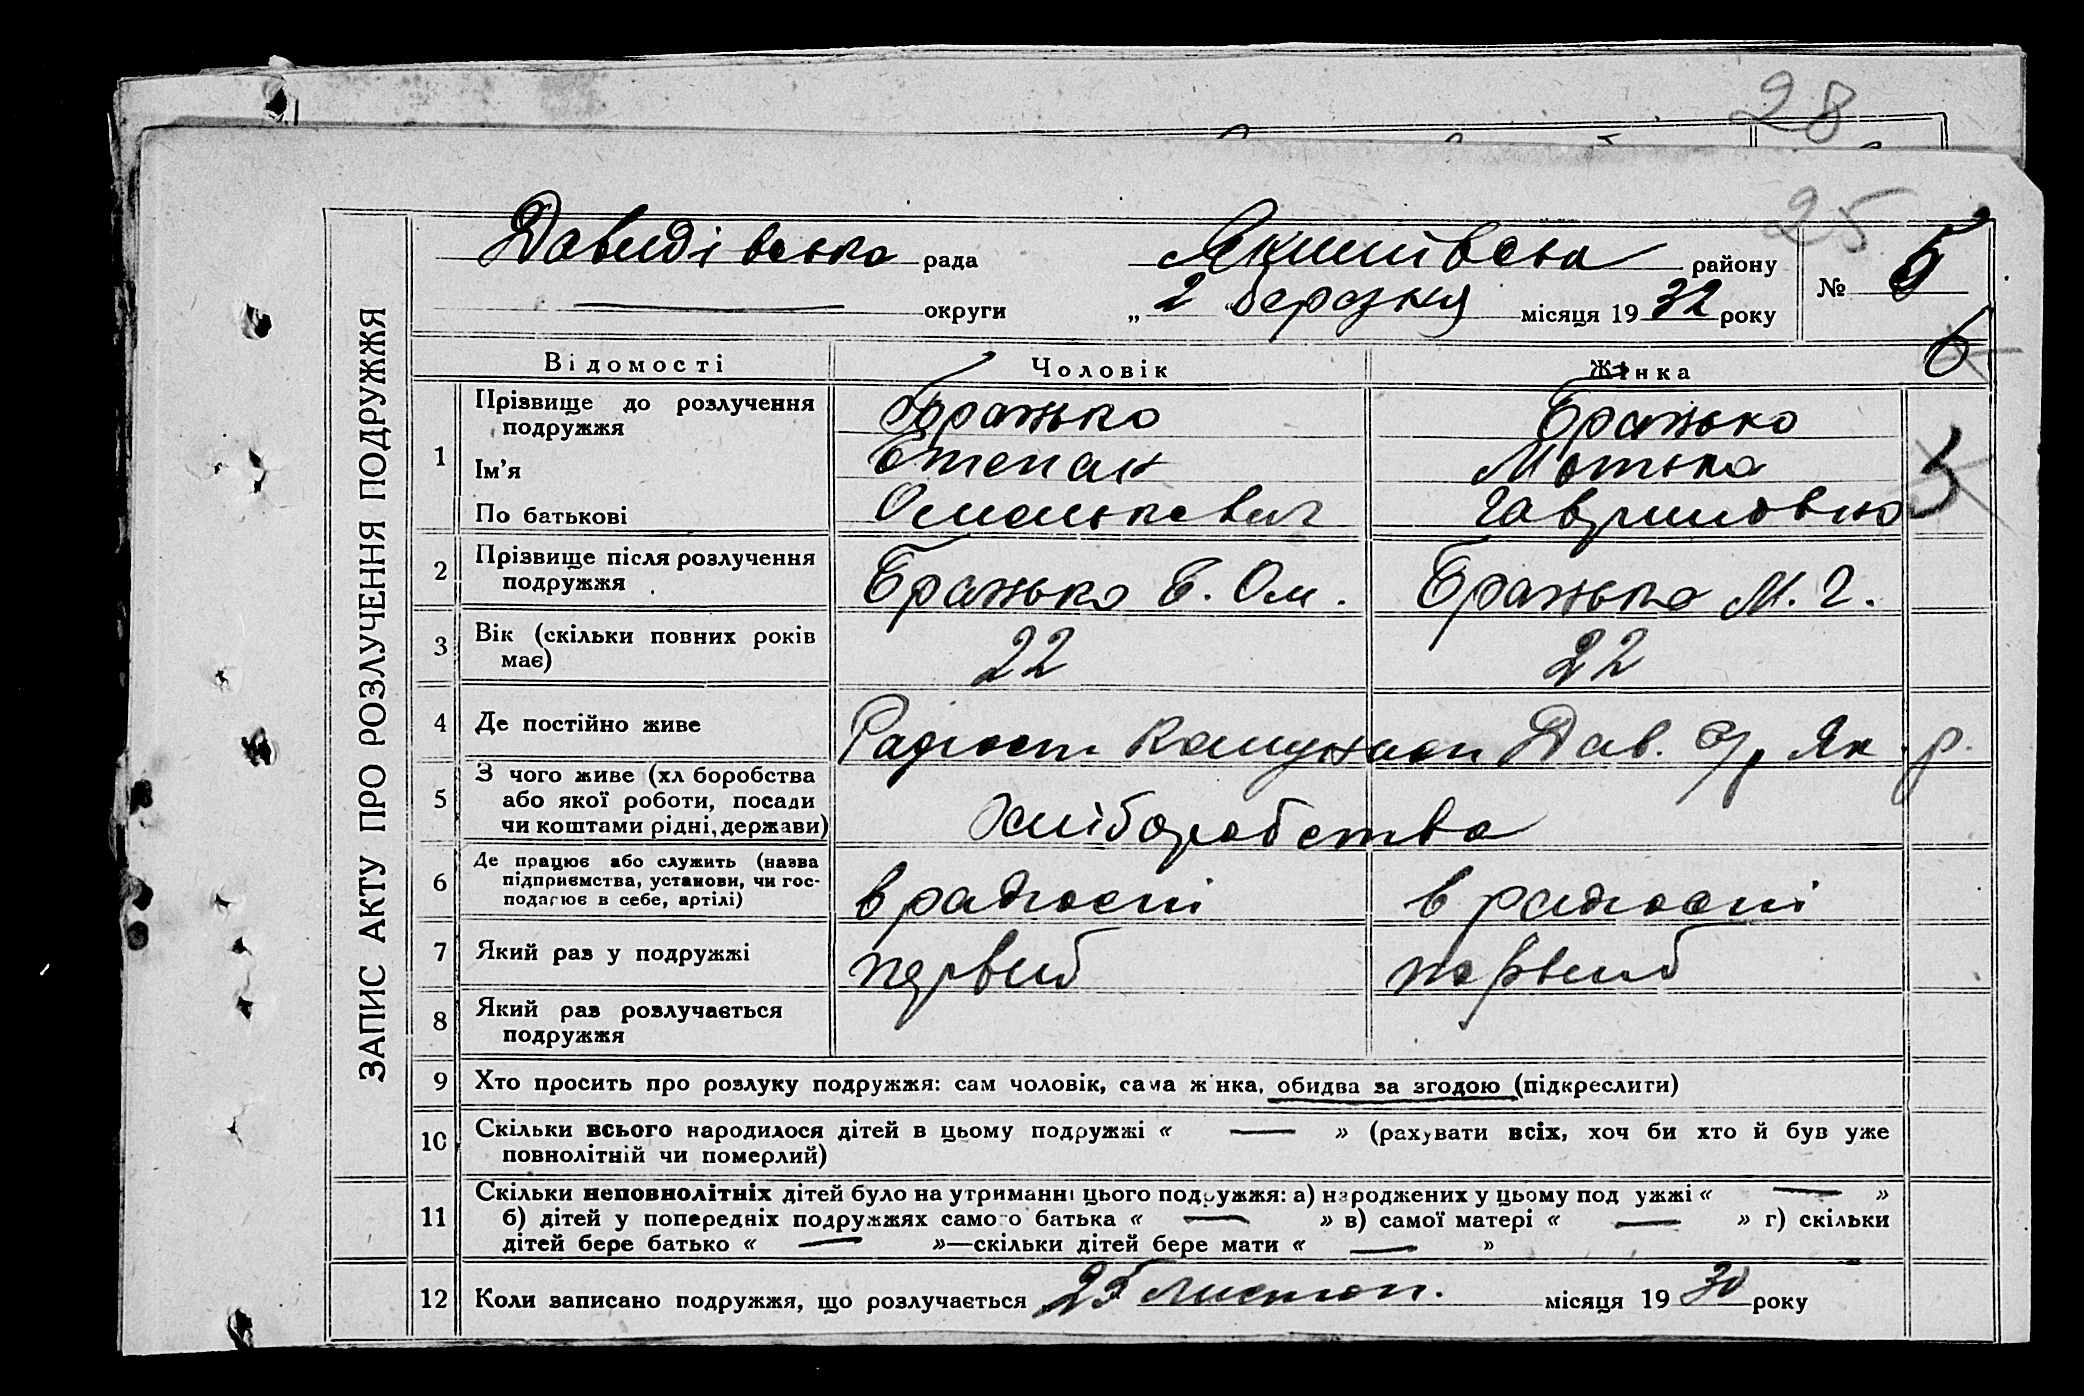 28
25
Давидівська рада Якимівська району № 5
округи „ 2 березня місяця 1932 року
6
ЗАПИС АКТУ ПРО РОЗЛУЧЕННЯ ПОДРУЖЖЯ
Відомості Чоловік Жінка
1 Прізвище до розлучення Бражько Бражько
подружжя
Ім’я Степан Мотька
По батькові Омелькович Гавриловна
2 Прізвище після розлучення
подружжя Бражько С. Ом. Бражько М. Г.
3 Вік (скільки повних років 22 22
має)
4 Де постійно живе Радгосп Дав. с/р Як. р.
5 З чого живе (хліборобства
або якої роботи, посади
чи коштами рідні, держави) Хліборобства
6 Де працює або служить (назва
підприємства, установи, чи гос-
подарює в себе, артілі) в радгоспі в радгоспі
7 Який раз у подружжі первий первий
8 Який раз розлучається
подружжя
9 Хто просить про розлуку подружжя: сам чоловік, сама жінка, обидва за згодою (підкреслити)
10 Скільки всього народилося дітей в цьому подружжі « — » (рахувати всіх, хоч би хто й був уже
повнолітній чи померлий)
11 Скільки неповнолітніх дітей було на утриманні цього подружжя: а) народжених у цьому подружжі « — »
б) дітей у попередніх подружжях самого батька « — » в) самої матері « — » г) скільки
дітей бере батько « — »—скільки дітей бере мати « — »
12 Коли записано подружжя, що розлучається 25 листоп. місяця 1930 року